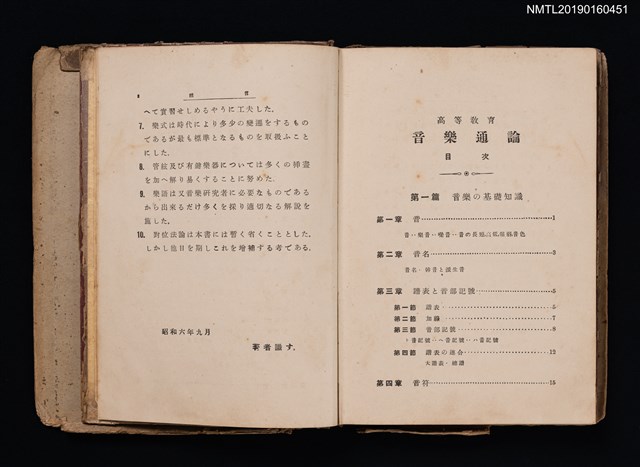 NMTL20190160451
緒言
へて實習せしめるやうに工夫した.
7. 樂式は時代により多少の變遷をするもの
であるが最も標準となるものを取扱ふこと
にした.
8. 管絃及び有鍵樂器については多くの挿畫
を加へ解り易くすることに努めた.
9. 樂語は又音樂研究者に必要なものである
から出來るだけ多くを採り適切なる解說を
施した.
10. 對位法論は本書には暫く省くこととした.
しかし後日を期しこれを增補する考である.
昭和六年九月
著者識す.
高等教育
音樂通論
目次
第一篇 音樂の基礎知識
第一章 音 1
音‥樂音‥噪音‥音の長短,高低,強弱,音色
第二章 音名 3
音名‥幹音と派生音
第三章 譜表と音部記號 5
第一節 譜表 5
第二節 加線 7
第三節 音部記號 8
ト音記號‥ヘ音記號‥ハ音記號
第四節 譜表の連合 12
大譜表‥總譜
第四章 音符 15